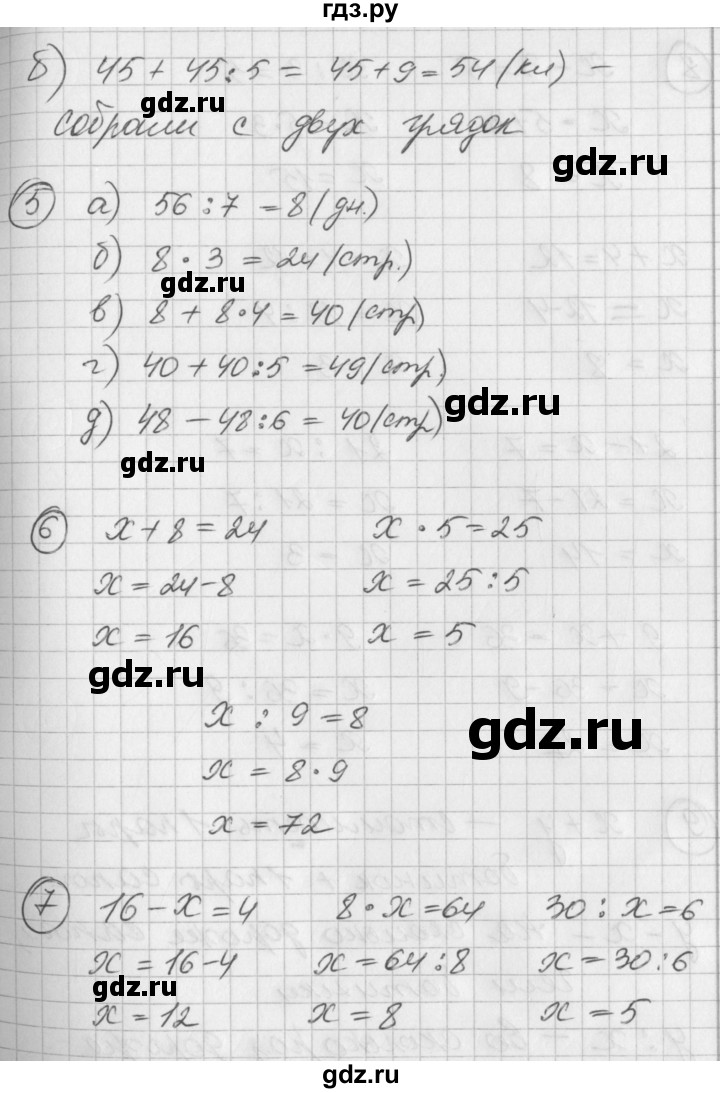 гдз.ру
б) 45 + 45:5 = 45+9=54 (кл) –
gdz.ru
собрали с двух грядок
gdz.ru
5 а) 56:7 =8(дн.)
б) 8 · 3 = 24 (стр.)
gdz.ru
в) 8 + 8·4 = 40 (стр)
г) 40 + 40:5 =49(стр.
gdz.ru
д) 48 – 48:6 = 40(стр)
gdz.ru
6 x + 8 = 24 x · 5=25
x = 24-8 x = 25:5
x = 16 x = 5
gdz.ru
x : 9 =8
gdz.ru
x = 8·9
x = 72
7 16-x=4 8·x=64 30:x=6
x = 16-4 x=64:8 x=30:6
gdz.ru gdz.ru
x = 12 x = 8 x = 5
gdz.ru